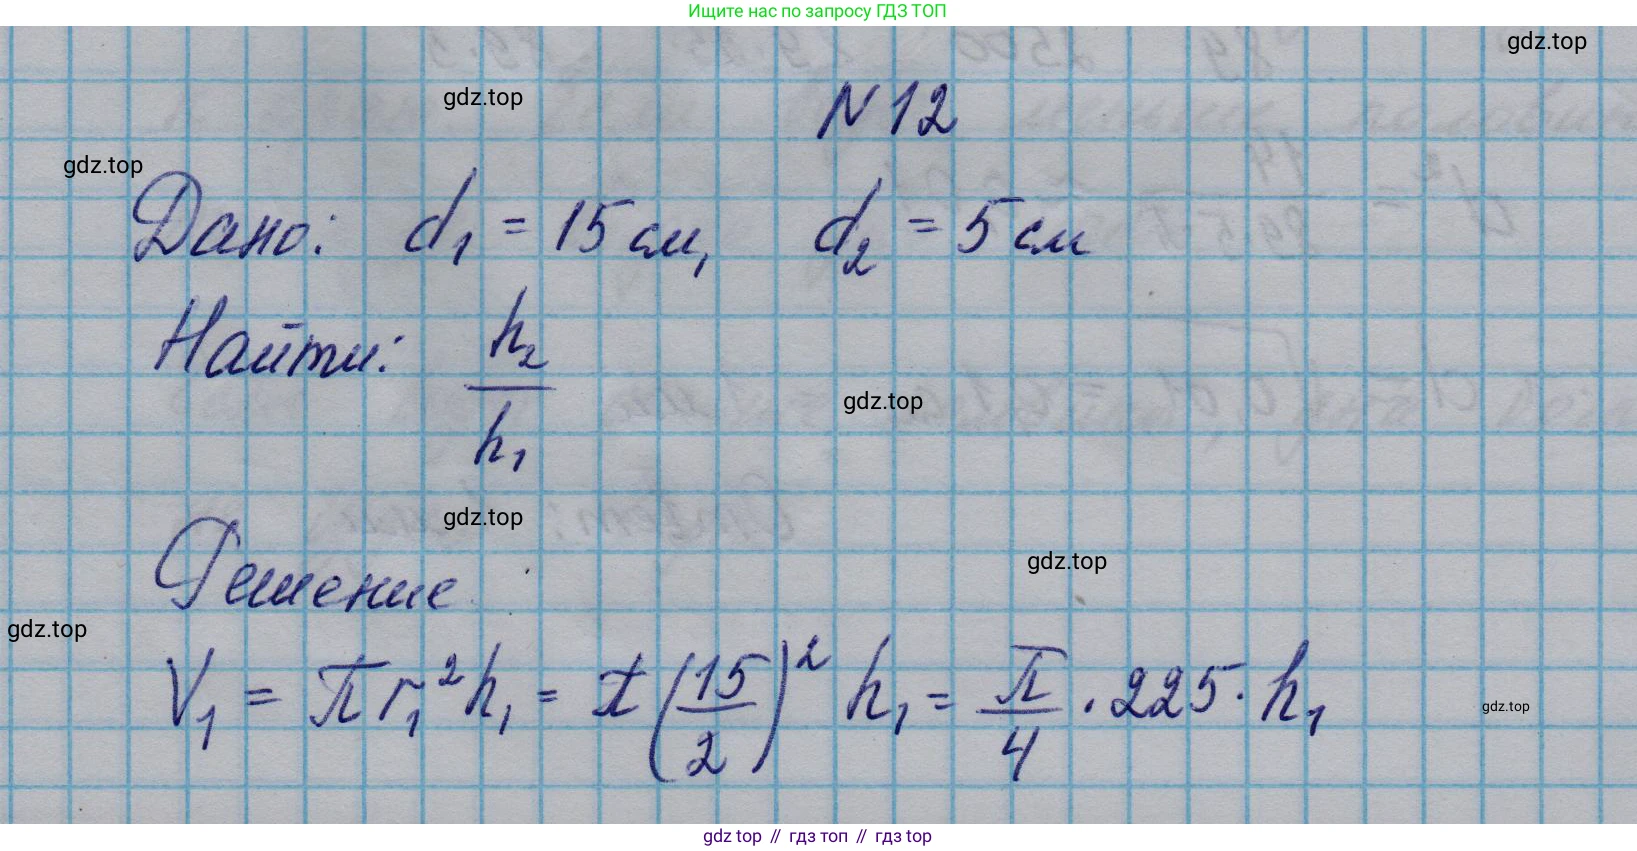 Ищите нас по запросу ГДЗ ТОП
gdz.top
gdz.top
N 12
gdz.top
Дано: d₁ = 15 см, d₂ = 5 см
Найти: h₂/h₁
gdz.top
gdz.top
gdz.top
Решение
gdz.top
V₁ = πr₁²h₁ = π(15/2)² h₁ = π/4 · 225 · h₁
gdz.top
gdz top // гдз топ // гдз top